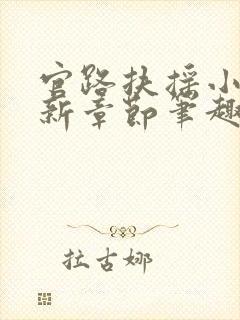 官路扶摇小
新章节笔趣
拉古娜